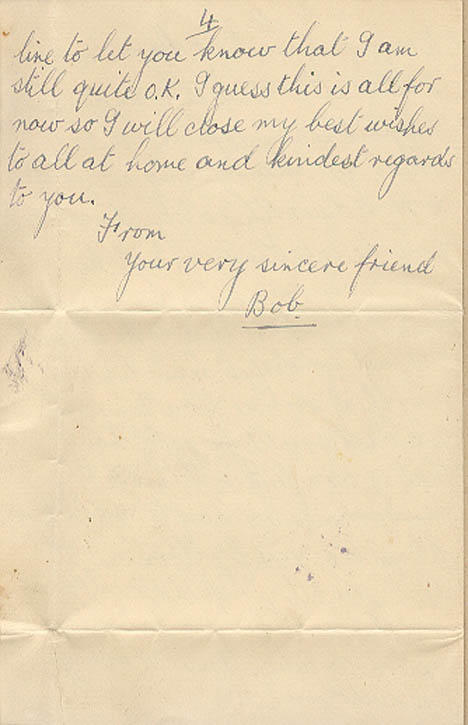 4
line to let you know that I am
still quite O.K. I guess this is all for
now so I will close my best wishes
to all at home and kindest regards
to you.
From
Your very sincere friend
Bob.